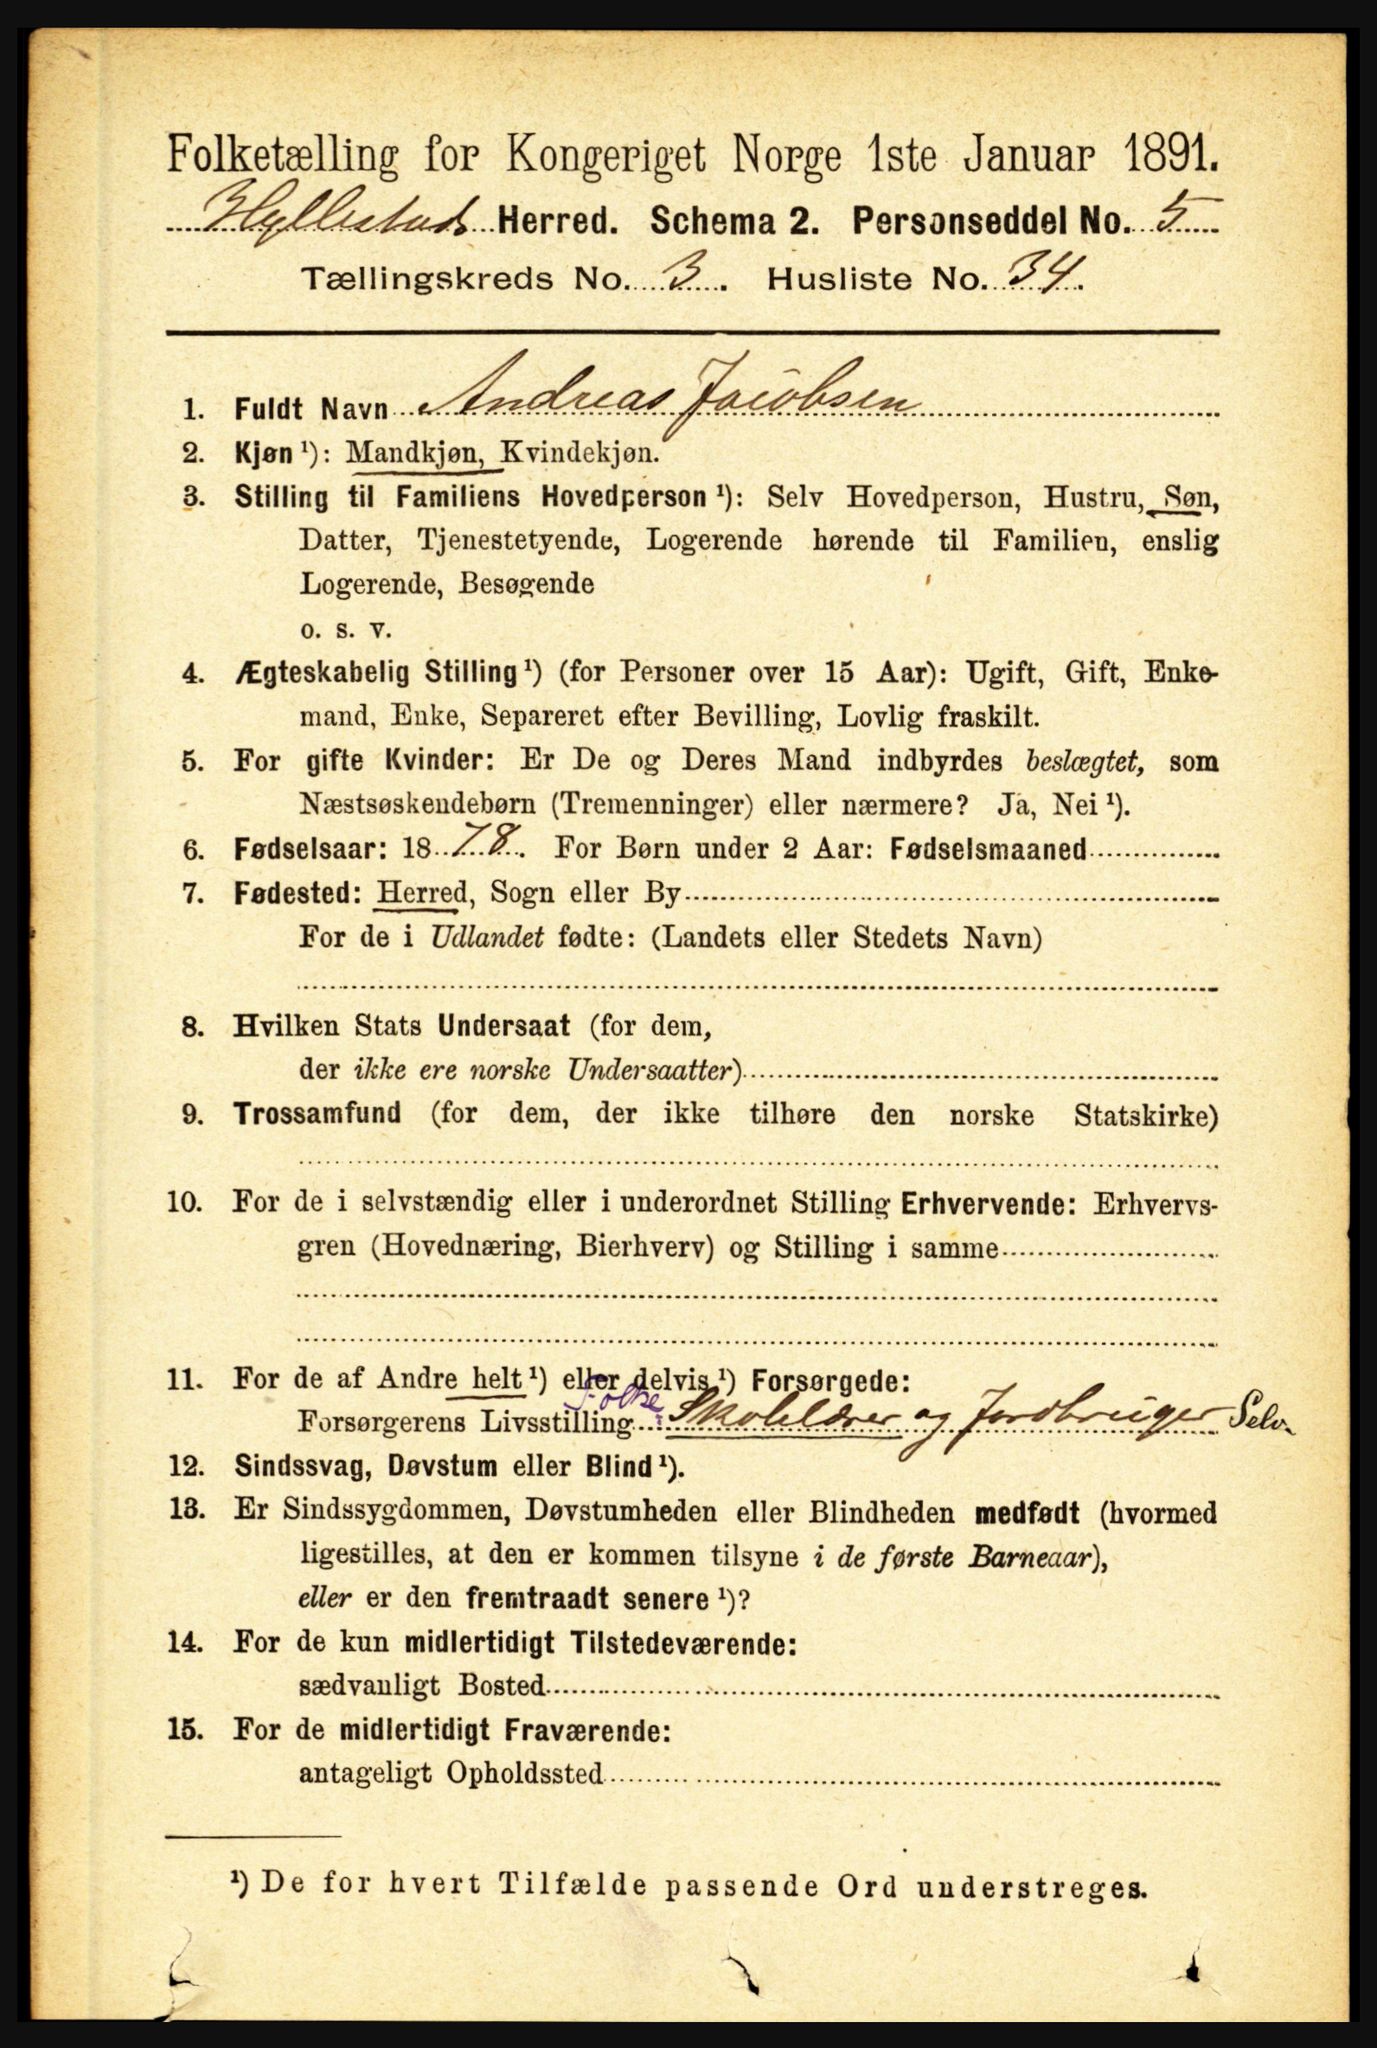 Folketælling for Kongeriget Norge 1ste Januar 1891.
Hyllestad Herred. Schema 2. Personseddel No. 5
Tællingskreds No. 3. Husliste No. 34.
1. Fuldt Navn Andreas Jacobsen
2. Kjøn ¹): Mandkjøn, Kvindekjøn.
3. Stilling til Familiens Hovedperson ¹): Selv Hovedperson, Hustru, Søn,
Datter, Tjenestetyende, Logerende hørende til Familien, enslig
Logerende, Besøgende
o. s. v.
4. Ægteskabelig Stilling ¹) (for Personer over 15 Aar): Ugift, Gift, Enke-
mand, Enke, Separeret efter Bevilling, Lovlig fraskilt.
5. For gifte Kvinder: Er De og Deres Mand indbyrdes beslægtet, som
Næstsøskendebørn (Tremenninger) eller nærmere? Ja, Nei ¹).
6. Fødselsaar: 1878. For Børn under 2 Aar: Fødselsmaaned
7. Fødested: Herred, Sogn eller By
For de i Udlandet fødte: (Landets eller Stedets Navn)
8. Hvilken Stats Undersaat (for dem,
der ikke ere norske Undersaatter)
9. Trossamfund (for dem, der ikke tilhøre den norske Statskirke)
10. For de i selvstændig eller i underordnet Stilling Erhvervende: Erhvervs-
gren (Hovednæring, Bierhverv) og Stilling i samme
11. For de af Andre helt ¹) eller delvis ¹) Forsørgede:
Folke
Forsørgerens Livsstilling Skolelærer og Jordbruger Selv.
12. Sindssvag, Døvstum eller Blind ¹).
13. Er Sindssygdommen, Døvstumheden eller Blindheden medfødt (hvormed
ligestilles, at den er kommen tilsyne i de første Barneaar),
eller er den fremtraadt senere ¹)?
14. For de kun midlertidigt Tilstedeværende:
sædvanligt Bosted
15. For de midlertidigt Fraværende:
antageligt Opholdssted
¹) De for hvert Tilfælde passende Ord understreges.